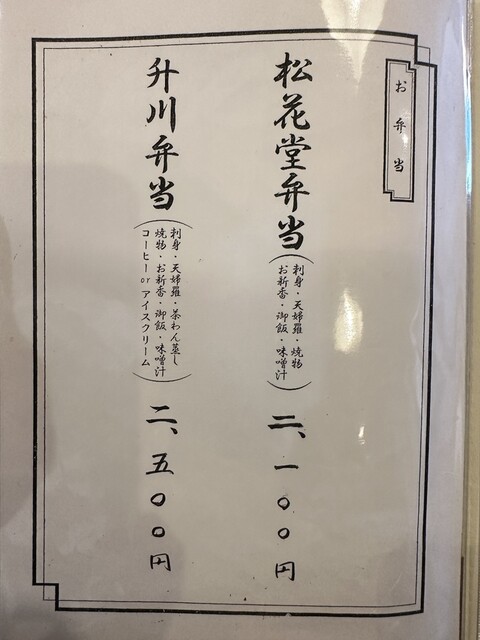 お弁当
松花堂弁当
(刺身・天婦羅・焼物
お新香・御飯・味噌汁)
二、一〇〇円
升川弁当
(刺身・天婦羅・茶わん蒸し
焼物・お新香・御飯・味噌汁
コーヒーorアイスクリーム)
二、五〇〇円